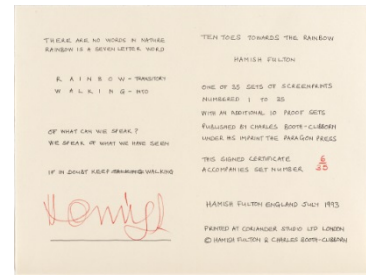 THERE ARE NO WORDS IN NATURE
RAINBOW IS A SEVEN LETTER WORD
R A I N B O W - TRANSITORY
W A L K I N G - INTO
OF WHAT CAN WE SPEAK?
WE SPEAK OF WHAT WE HAVE SEEN
IF IN DOUBT KEEP WALKING
Hamish
TEN TOES TOWARDS THE RAINBOW
HAMISH FULTON
ONE OF 35 SETS OF SCREENPRINTS
NUMBERED 1 TO 35
WITH AN ADDITIONAL 10 PROOF SETS
PUBLISHED BY CHARLES BOOTH-CLIBBORN
UNDER HIS IMPRINT THE PARAGON PRESS
THIS SIGNED CERTIFICATE
ACCOMPANIES SET NUMBER
HAMISH FULTON ENGLAND JULY 1993
PRINTED AT CORIANDER STUDIO LTD LONDON
© HAMISH FULTON & CHARLES BOOTH-CLIBBORN